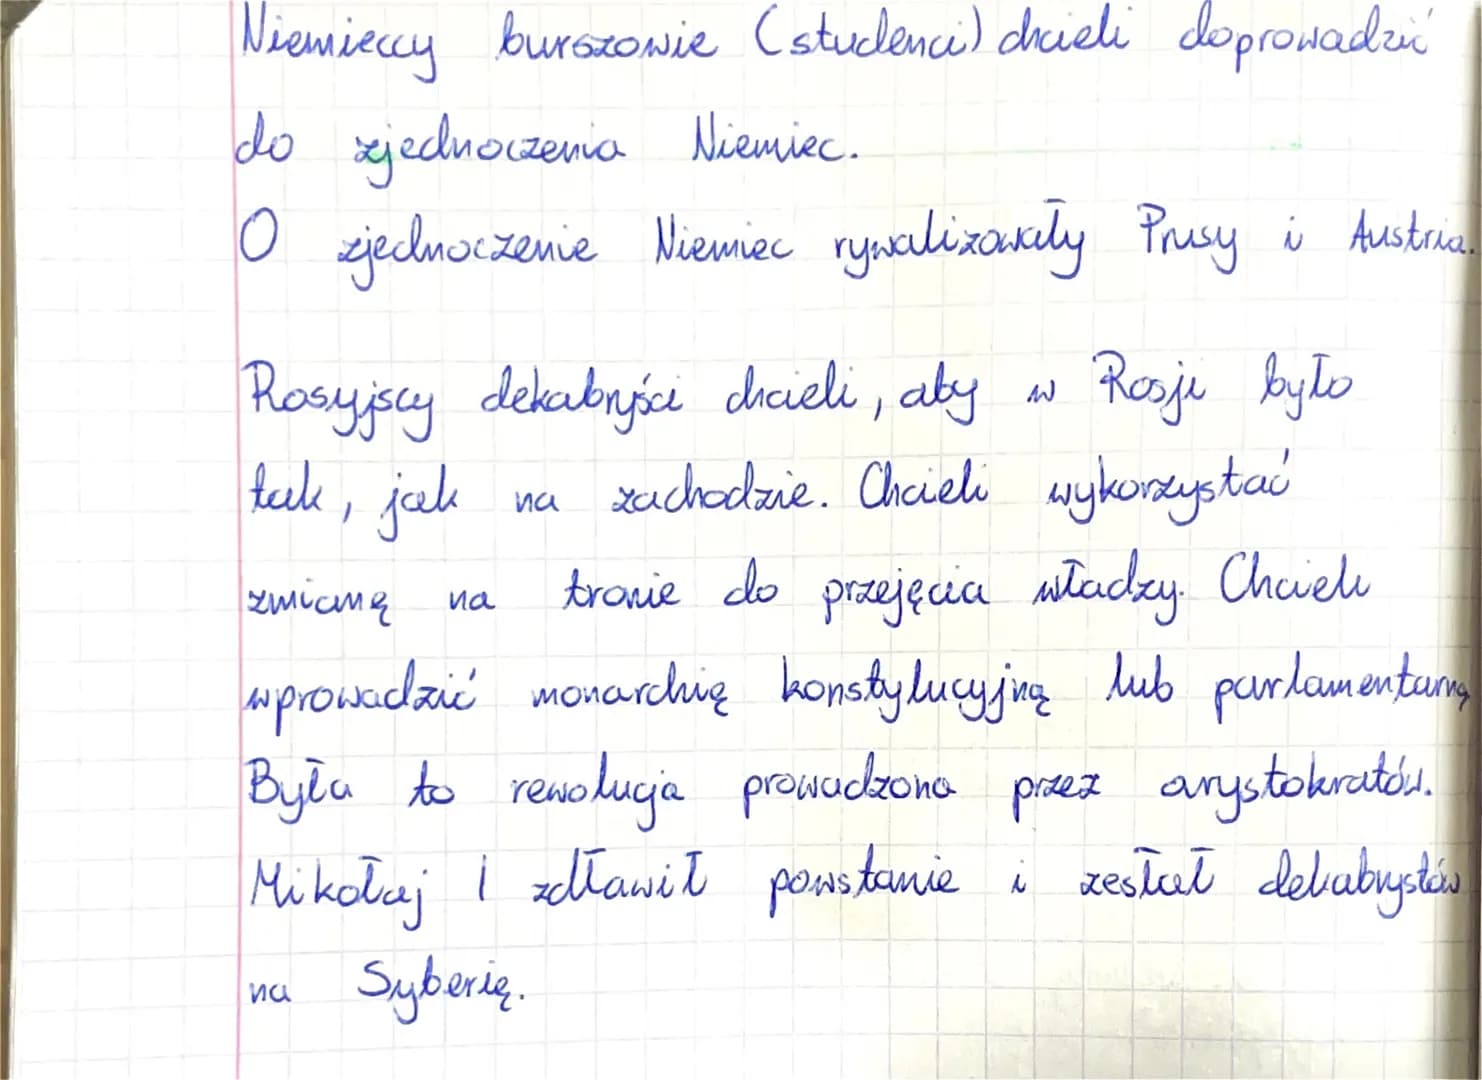 Niemieccy burszowie (studenci) chcieli doprowadzić
do zjednoczenia Niemiec.
O zjednoczenie Niemiec rywalizowały Prusy i Austria.
Rosyjscy dekabryści chcieli, aby w Rosji było
tak, jak na zachodzie. Chcieli wykorzystać
zmianę na tronie do przejęcia władzy. Chcieli
wprowadzić monarchię konstytucyjną lub parlamentarną
Była to rewolucja prowadzona przez arystokratów.
Mikołaj I zdławił powstanie i zesłał dekabrystów
na Syberię.